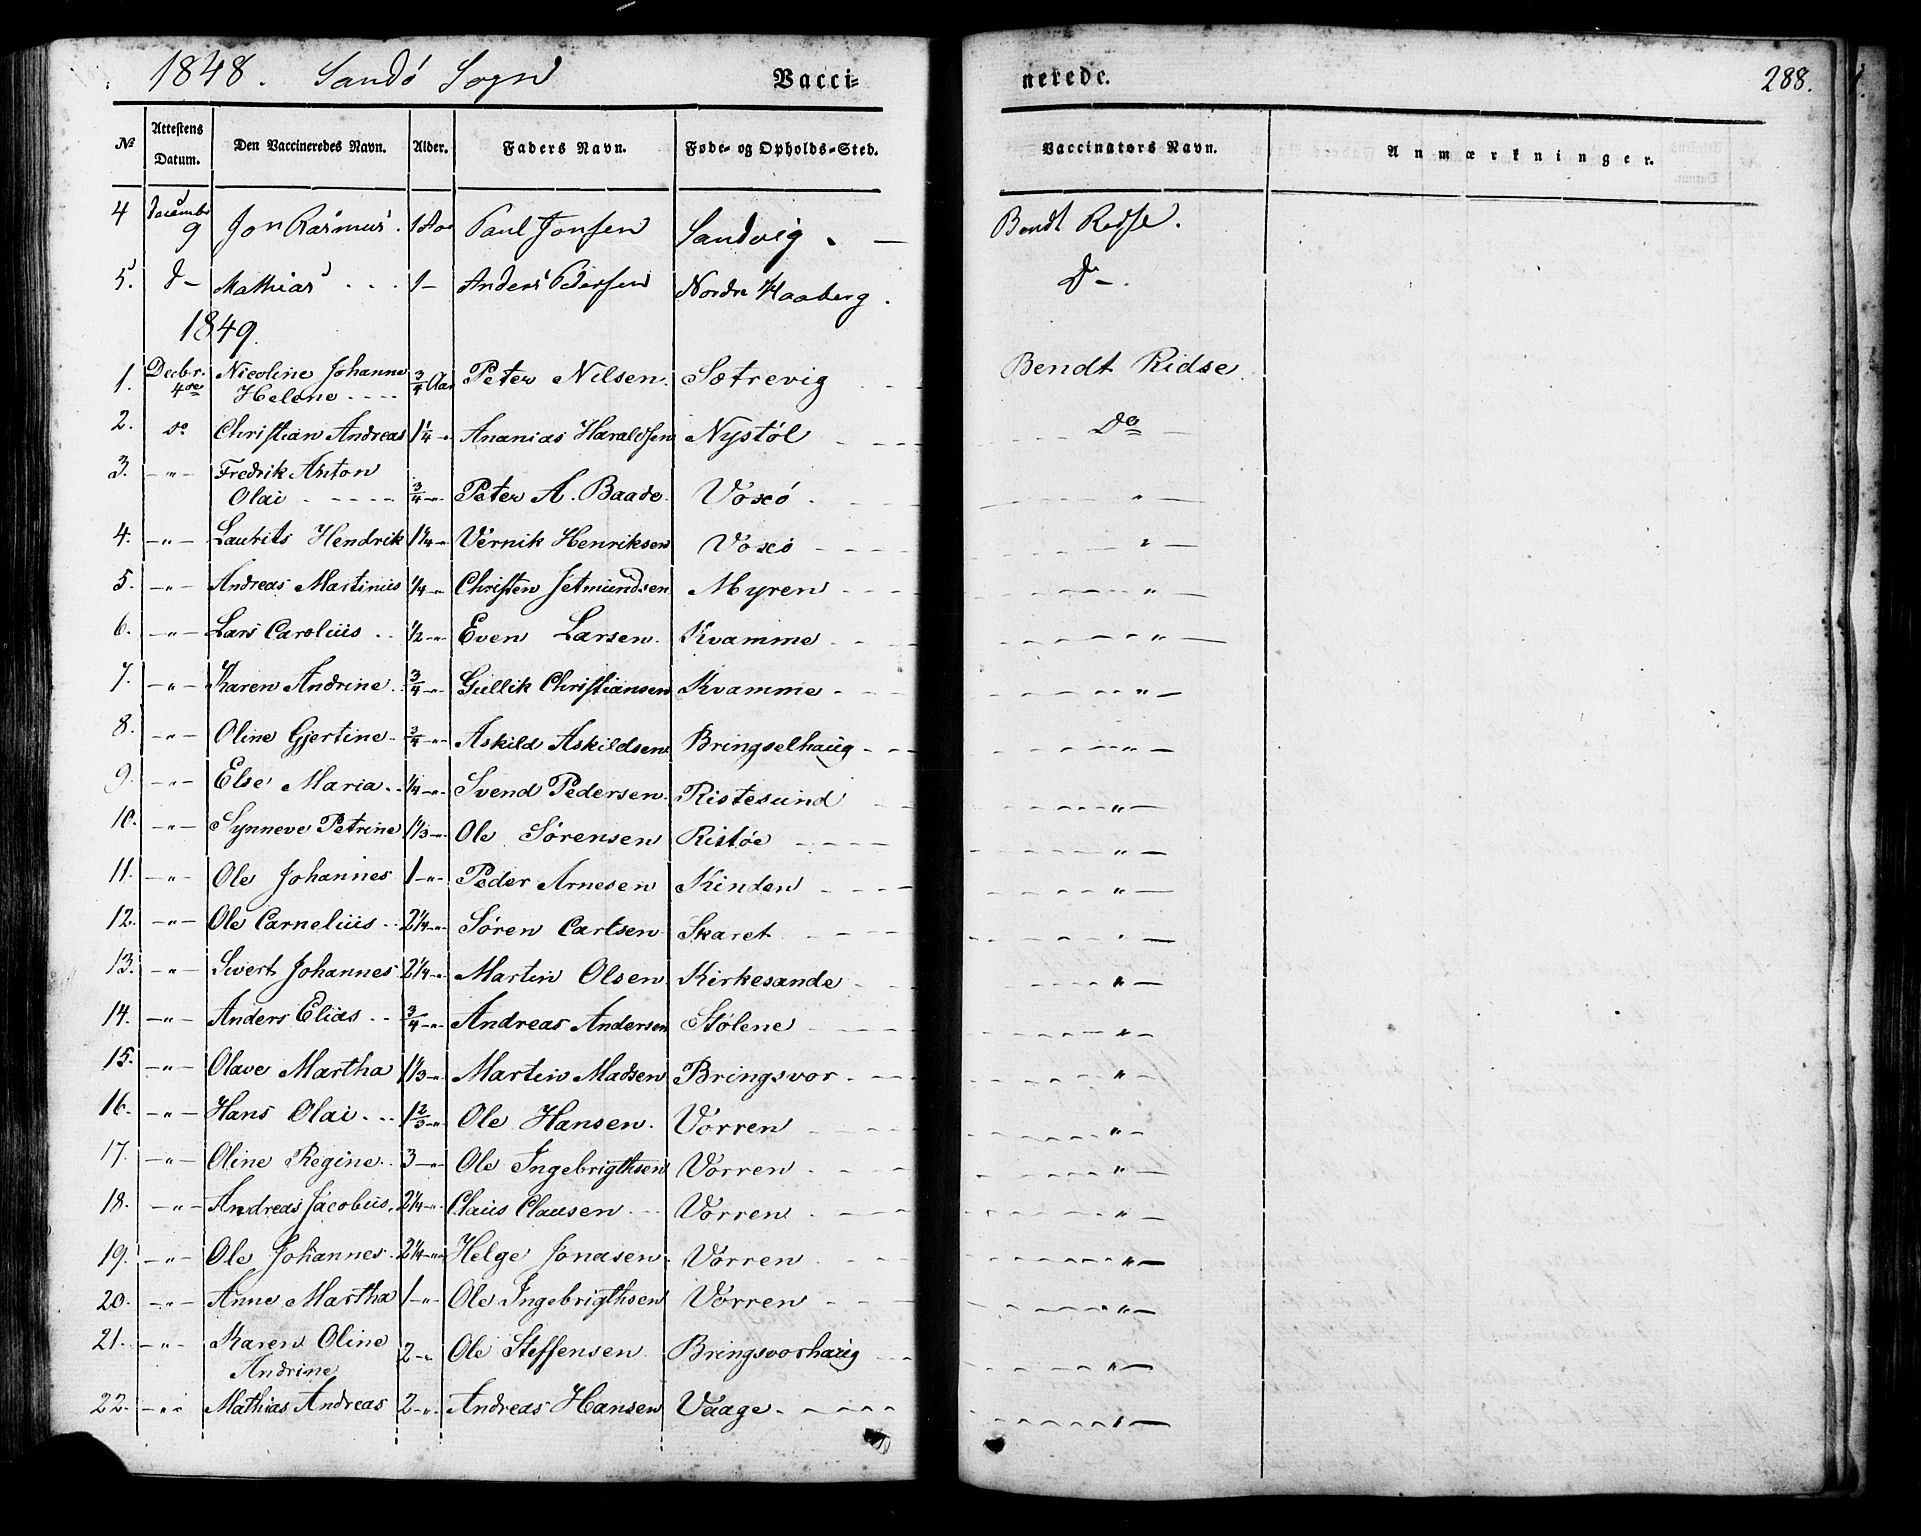 1848. Sandø Sogn Vacci=
nerede. 288.
№ Attestens Datum. Den Vaccineredes Navn. Alder. Faders Navn. Føde- og Opholds-Sted. Vaccinators Navn. Anmærkninger.
4 9 Jon Rasmus . 1 Paul Jonsen Sandvig . —
5. d— Mathias . . . 1 — Anders Nordre Haaberg . D— .
1849.
1. Decbr. 4de Nicoline Johanne Helene - - - - 3/4 Aar Peter Nilsen. Sætrevig Bendt Ridse
2. do Christian Andreas 1 1/4 -"- Ananias Haraldsen Nystøl - - - Do —
3. — " — Fredrik Anton Olai - - - - - 3/4 -"- Peter A. Baade. Voxø . - - - "
4. — " — Laurits Hendrik 1 1/4 -"- Vernik Henriksen Voxø - - - - "
5. — " — Andreas Martinus 1/4 -"- Christen Myren - - - - "
6. — " — Lars Carolius . . 1/2 -"- Even Larsen. Kvamme - - - "
7. — " — Karen Andrine . 3/4 -"- Gullik Christiansen Kvamme - - - "
8. — " — Oline Gjertine - 3/4 -"- Askild Askildsen Bringselhaug - - - "
9. — " — Else Maria . . 1/4 -"- Svend Pedersen. Ristesund - - "
10. — " — Synneve Petrine 1 1/3 -"- Ole Sørensen Ristøe - - - - "
11. — " — Ole Johannes 1 -"- Peder Arnesen Kinden - - - - "
12. — " — Ole Carnelius . . 2 1/4 -"- Søren Carlsen Skaret - - - "
13. — " — Sivert Johannes 2 1/4 -"- Martin Olsen Kirkesande - - "
14. — " — Anders Elias . . 3/4 -"- Andreas Andersen Stølene - - - - "
15. — " — Olave Martha 1 1/3 -"- Martin Madsen Bringsvor . - - - "
16. — " — Hans Olai . . . 1 2/3 -"- Ole Hansen . Vorren - - - "
17. — " — Oline Regine . . 3 -"- Ole Ingebrigthsen Vorren . - - - "
18. — " — Andreas Jacobus . 2 1/4 -"- Claus Clausen - - - Vorren . - - - "
19. — " — Ole Johannes . 2 1/4 -"- Helge Jonasen . Vorren . - - "
20. — " — Anne Martha 1 -"- Ole Ingebrigthsen Vorren - - - "
21. — " — Karen Oline Andrine 2 -"- Ole Steffensen Bringsvorhaug - - - "
22. — " — Mathias Andreas 2 -"- Andreas Hansen Vaage . - - - - "